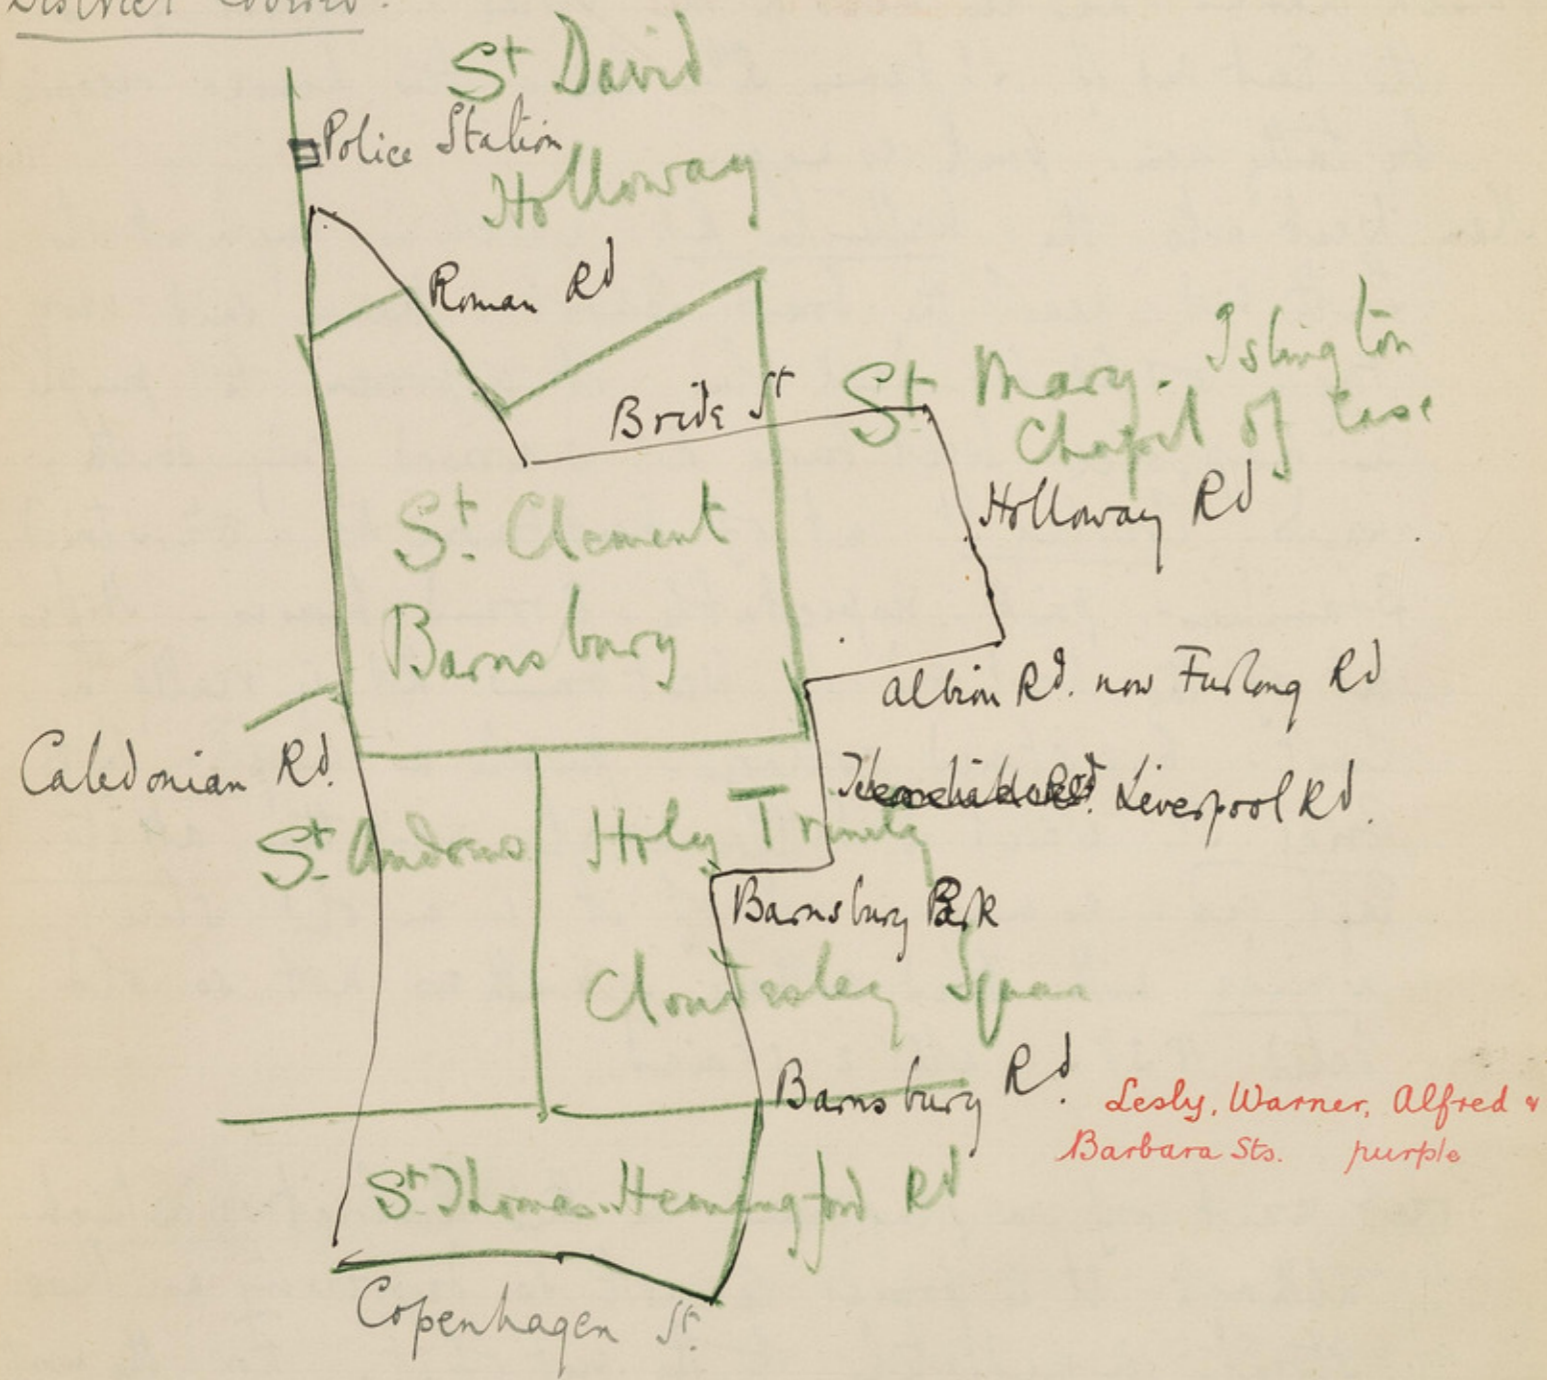 District
St David
Police Station
Holloway
Roman Rd
Bride St
St Mary. Islington
Chapel of Ease
Holloway Rd
St. Clement
Barnsbury
Albion Rd. now Furlong Rd
Caledonian Rd.
Liverpool Rd.
St. Andrews
Holy Trinity
Barnsbury Park
Cloudesley Square
Barnsbury Rd.
Lesly, Warner, Alfred &
Barbara Sts. purple
St. Thomas. Hemingford Rd
Copenhagen St.